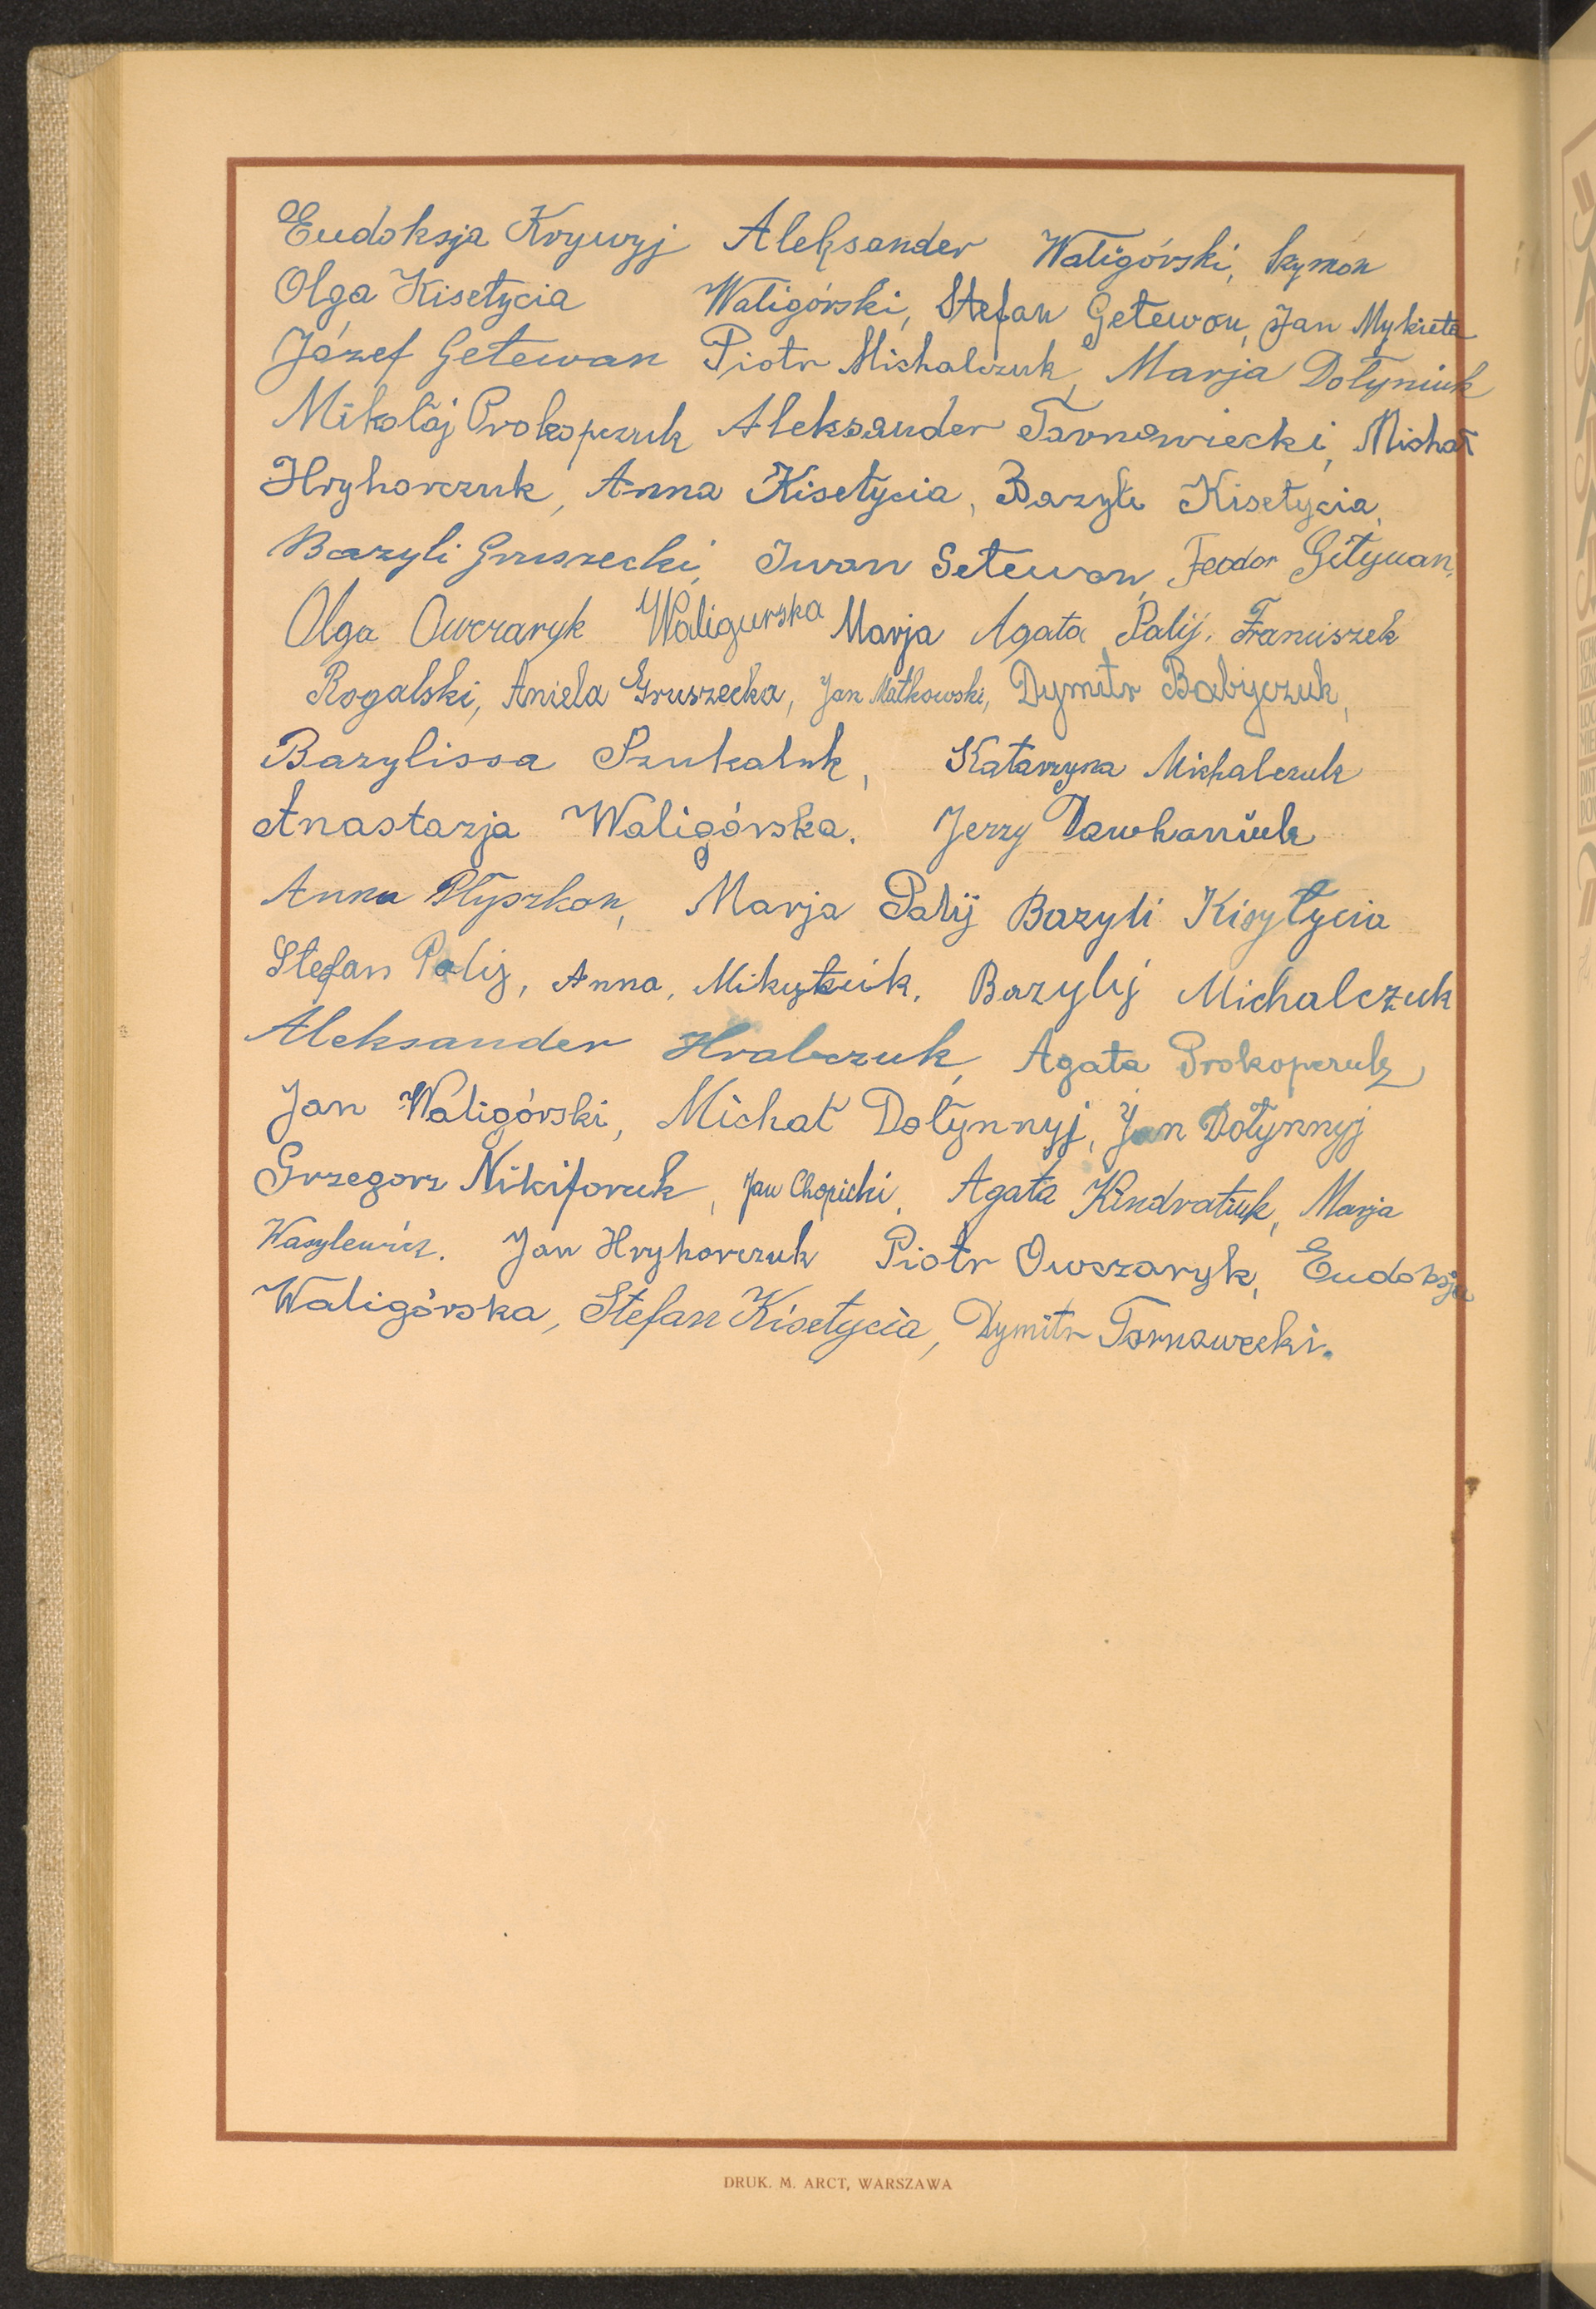 Eudoksja Krywyj Aleksander Waligórski, Szymon
Olga Kisełycia Waligórski, Stefan Getewon, Jan Mykieta
Józef Getewan Piotr Michalczuk, Marja Dołyniuk
Mikołaj Prokopczuk Aleksander Tarnawiecki, Michał
Hryhorczuk, Anna Kisełycia, Bazyli Kisełycia,
Bazyli Gruszecki, Iwan Getewon, Feodor Gitywan,
Olga Owczaryk Waligurska Marja Agata Palij, Franciszek
Rogalski, Aniela Gruszecka, Jan Matkowski, Dymitr Babijczuk,
Bazylissa Szukaluk, Katarzyna Michalczuk
Anastazja Waligórska. Jerzy Dawhaniuk
Anna Płyszkon, Marja Palij Bazyli Kisyłycia
Stefan Palij, Anna, Mikytiuk. Bazylij Michalczuk
Aleksander Hrabczuk, Agata Prokopczuk,
Jan Waligórski, Michał Dołynnyj, Jan Dołynnyj
Grzegorz Nikiforuk, Jan Chopicki, Agata Kindratiuk, Marja
Wasylewicz. Jan Hryhorczuk Piotr Owczaryk, Eudoksja
Waligórska, Stefan Kisełycia, Dymitr Tarnawecki.
DRUK. M. ARCT, WARSZAWA